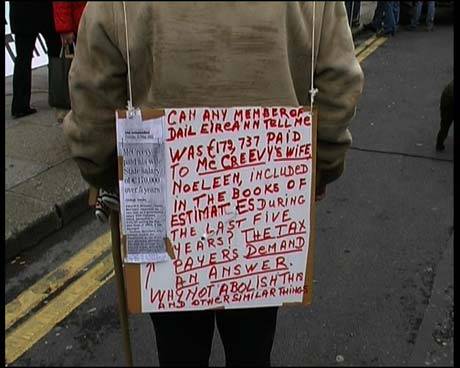 McCreevy
paid his wife
State salary
of €170,000
over 5 years
CAN ANY MEMBER OF
DAIL EIREANN TELL ME
WAS €179,737 PAID
TO MCCREEVY'S WIFE
NOELEEN, INCLUDED
IN THE BOOKS OF
ESTIMATES DURING
THE LAST FIVE
YEARS? THE TAX
PAYERS DEMAND
AN ANSWER.
WHY NOT ABOLISH THIS
AND OTHER SIMILAR THINGS